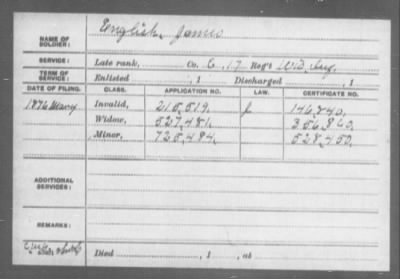 NAME OF SOLDIER: English, James
SERVICE: Late rank, Co. C, 17 Reg't Wis. Inf.
TERM OF SERVICE: Enlisted , 1 Discharged , 1
DATE OF FILING. CLASS. APPLICATION NO. LAW. CERTIFICATE NO.
1876 Invalid, 215,519. 146,840.
Widow, 527,481. 356,860.
Minor, 725,484. 528,450.
ADDITIONAL SERVICES:
REMARKS:
Died , 1 , at